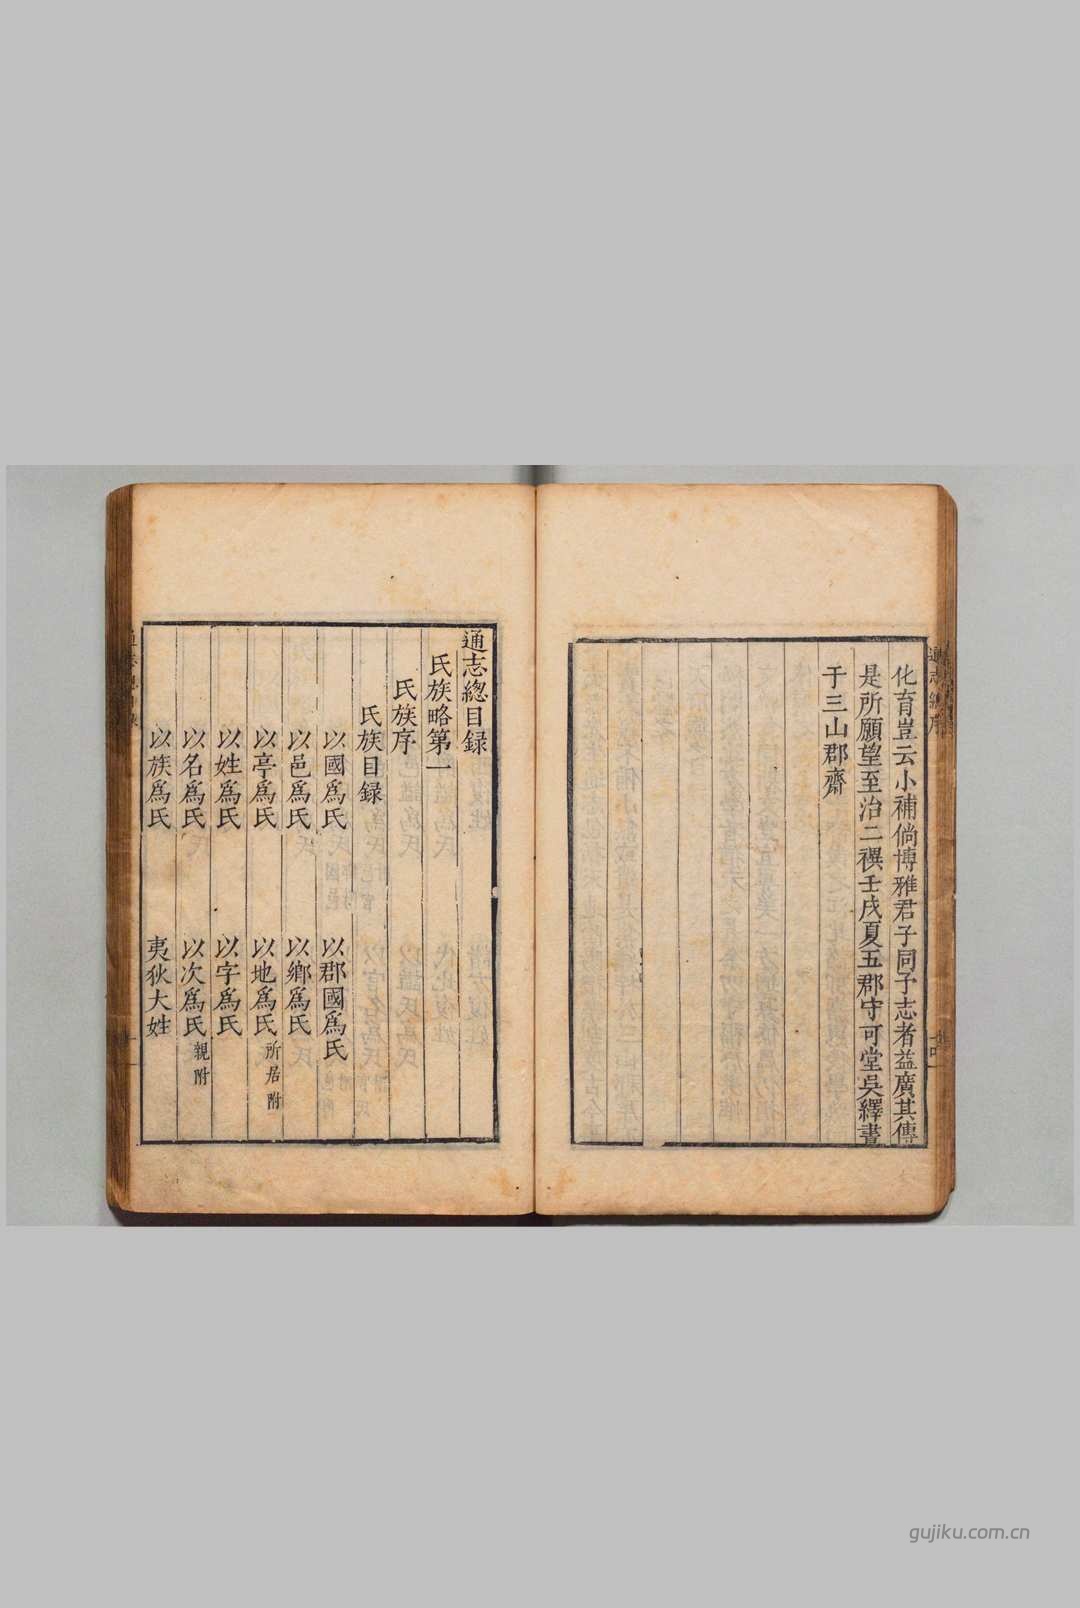 化育豈云小補倘博雅君子同予志者益廣其傳
是所願望至治二禩壬戌夏五郡守可堂吳繹書
于三山郡齋
通志總序
通志總目録
氏族略第一
氏族序
氏族目録
以國爲氏 以郡國爲氏
以邑爲氏 以鄉爲氏
以亭爲氏 以地爲氏 所居附
以姓爲氏 以字爲氏
以名爲氏 以次爲氏 親附
以族爲氏 夷狄大姓
gujiku.com.cn